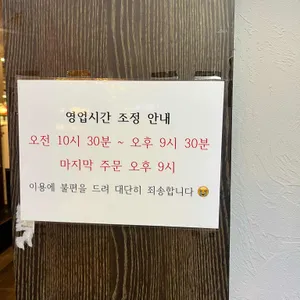 영업시간 조정 안내
오전 10시 30분 ~ 오후 9시 30분
마지막 주문 오후 9시
이용에 불편을 드려 대단히 죄송합니다 😭